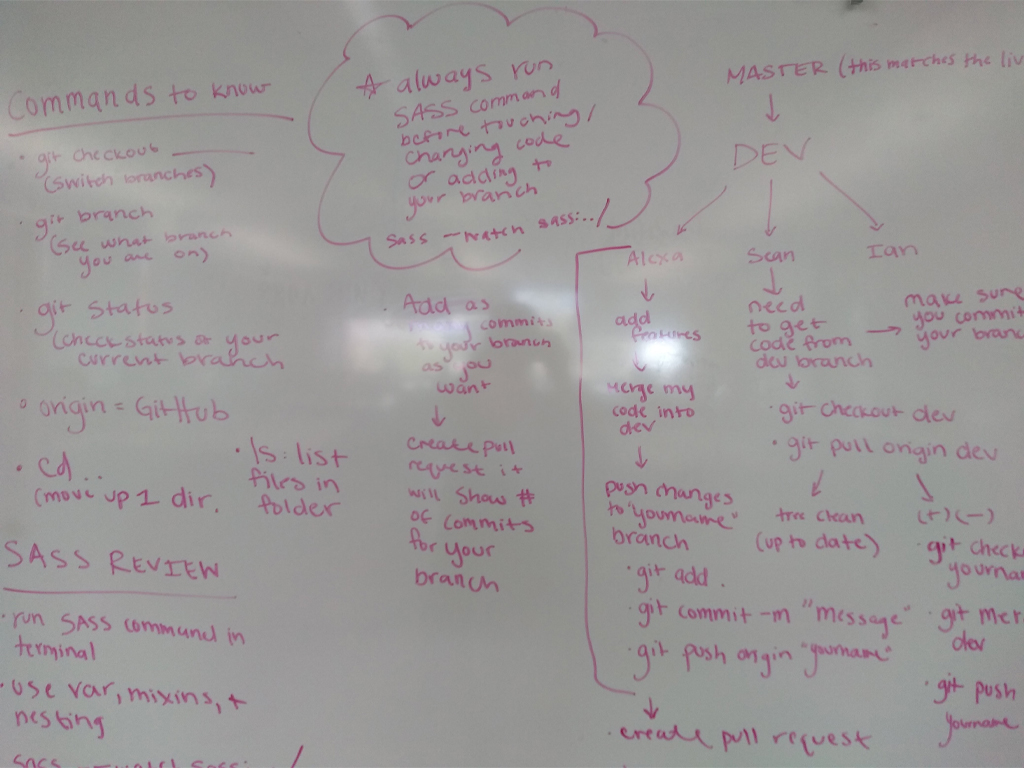 Commands to know
• git checkout ____
(switch branches)
• git branch
(see what branch
you are on)
• git status
(check status of your
current branch
• origin = GitHub
• cd ..
(move up 1 dir.
• ls: list
files in
folder
SASS REVIEW
• run SASS command in
terminal
• use var, mixins, +
nesting
☆ always run
SASS command
before touching/
changing code
or adding to
your branch
sass --watch sass:../
• Add as
many commits
to your branch
as you
want
↓
create pull
request it
will show #
of commits
for your
branch
MASTER (this matches the liv
↓
DEV
Alexa
↓
add
features
↓
merge my
code into
dev
↓
push changes
to "yourname"
branch
• git add .
• git commit -m "message"
• git push origin "yourname"
↓
• create pull request
Sean
↓
need
to get
code from
dev branch
→
make sure
you commit
your branc
↓
• git checkout dev
• git pull origin dev
tree clean
(up to date)
(+) (-)
• git check
yourna
• git mer
dev
• git push
yourname
Ian